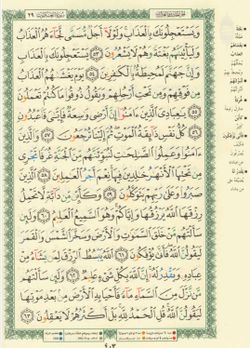 وَيَسْتَعْجِلُونَكَ بِالْعَذَابِ وَلَوْلَا أَجَلٌ مُّسَمًّى لَّجَاءَهُمُ الْعَذَابُ
وَلَيَأْتِيَنَّهُم بَغْتَةً وَهُمْ لَا يَشْعُرُونَ ٥٣ يَسْتَعْجِلُونَكَ بِالْعَذَابِ
وَإِنَّ جَهَنَّمَ لَمُحِيطَةٌ بِالْكَافِرِينَ ٥٤ يَوْمَ يَغْشَاهُمُ الْعَذَابُ
مِن فَوْقِهِمْ وَمِن تَحْتِ أَرْجُلِهِمْ وَيَقُولُ ذُوقُوا مَا كُنتُمْ تَعْمَلُونَ
٥٥ يَاعِبَادِيَ الَّذِينَ آمَنُوا إِنَّ أَرْضِي وَاسِعَةٌ فَإِيَّايَ فَاعْبُدُونِ
٥٦ كُلُّ نَفْسٍ ذَائِقَةُ الْمَوْتِ ثُمَّ إِلَيْنَا تُرْجَعُونَ ٥٧ وَالَّذِينَ
آمَنُوا وَعَمِلُوا الصَّالِحَاتِ لَنُبَوِّئَنَّهُم مِّنَ الْجَنَّةِ غُرَفًا تَجْرِي
مِن تَحْتِهَا الْأَنْهَارُ خَالِدِينَ فِيهَا نِعْمَ أَجْرُ الْعَامِلِينَ ٥٨ الَّذِينَ
صَبَرُوا وَعَلَى رَبِّهِمْ يَتَوَكَّلُونَ ٥٩ وَكَأَيِّن مِّن دَابَّةٍ لَّا تَحْمِلُ
رِزْقَهَا اللَّهُ يَرْزُقُهَا وَإِيَّاكُمْ وَهُوَ السَّمِيعُ الْعَلِيمُ ٦٠ وَلَئِن
سَأَلْتَهُم مَّنْ خَلَقَ السَّمَاوَاتِ وَالْأَرْضَ وَسَخَّرَ الشَّمْسَ وَالْقَمَرَ
لَيَقُولُنَّ اللَّهُ فَأَنَّى يُؤْفَكُونَ ٦١ اللَّهُ يَبْسُطُ الرِّزْقَ لِمَن يَشَاءُ مِنْ
عِبَادِهِ وَيَقْدِرُ لَهُ إِنَّ اللَّهَ بِكُلِّ شَيْءٍ عَلِيمٌ ٦٢ وَلَئِن سَأَلْتَهُم
مَّن نَّزَّلَ مِنَ السَّمَاءِ مَاءً فَأَحْيَا بِهِ الْأَرْضَ مِن بَعْدِ مَوْتِهَا
لَيَقُولُنَّ اللَّهُ قُلِ الْحَمْدُ لِلَّهِ بَلْ أَكْثَرُهُمْ لَا يَعْقِلُونَ ٦٣
٤٠٣